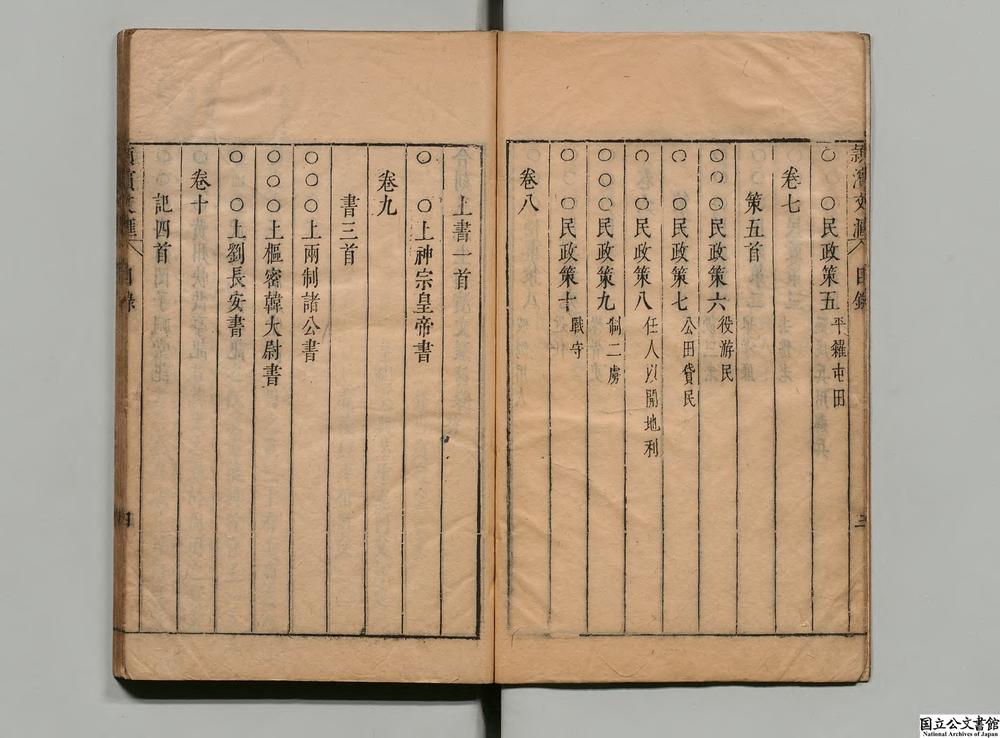 潁濱文滙 目錄 三
○ ○民政策五 平糴屯田
卷七
策五首
○○○民政策六 役游民
○ ○民政策七 公田貸民
○ ○民政策八 任人以開地利
○○○民政策九 制二虜
○ ○民政策十 戰守
卷八
上書一首
○ ○上神宗皇帝書
卷九
書三首
○○○上兩制諸公書
○○○上樞密韓大尉書
○ ○上劉長安書
卷十
記四首
潁濱文滙 目錄 四
国立公文書館
National Archives of Japan